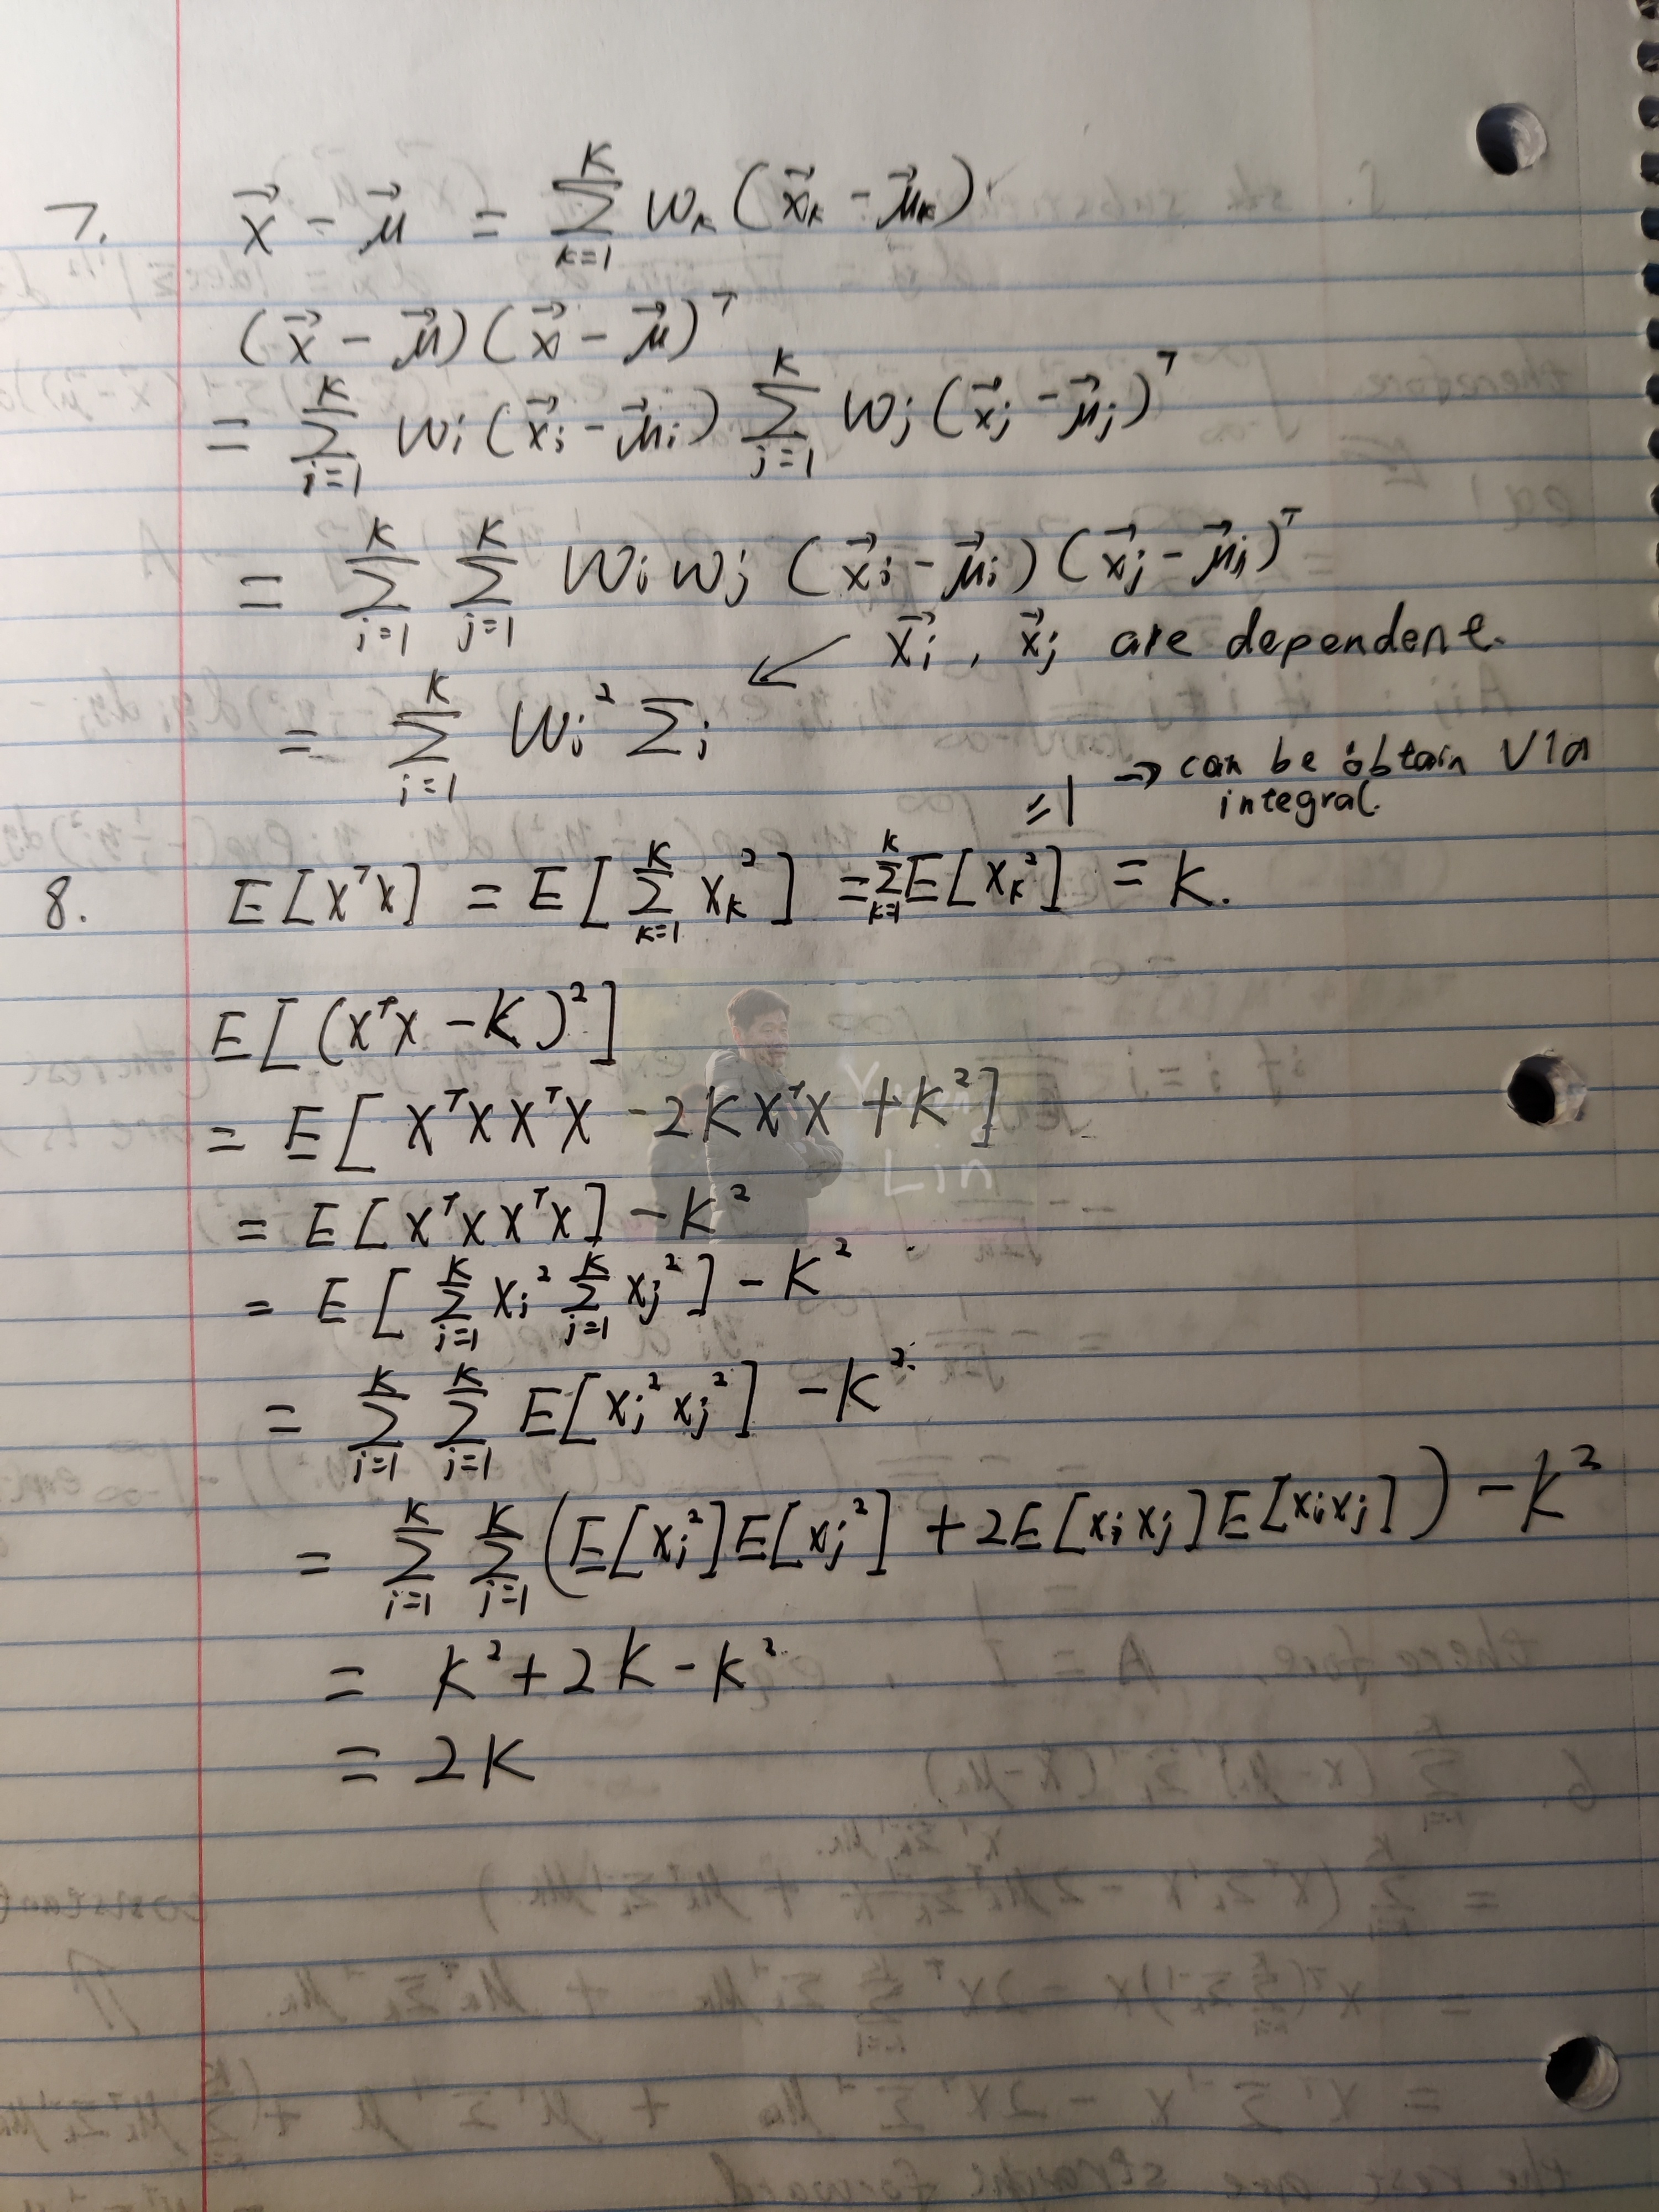 7. x⃗ - μ⃗ = Σ_{k=1}^{K} w_k (x⃗_k - μ⃗_k)
(x⃗ - μ⃗)(x⃗ - μ⃗)^T
= Σ_{i=1}^{K} w_i (x⃗_i - μ⃗_i) Σ_{j=1}^{K} w_j (x⃗_j - μ⃗_j)^T
= Σ_{i=1}^{K} Σ_{j=1}^{K} w_i w_j (x⃗_i - μ⃗_i)(x⃗_j - μ⃗_j)^T
↙ x⃗_i , x⃗_j are dependent.
= Σ_{i=1}^{K} w_i^2 Σ_i
=1 → can be obtain via
integral.
8. E[x^T x] = E[Σ_{k=1}^{K} x_k^2] = Σ_{k=1}^{K} E[x_k^2] = K.
E[(x^T x - K)^2]
= E[x^T x x^T x - 2K x^T x + K^2]
Lin
= E[x^T x x^T x] - K^2
= E[Σ_{i=1}^{K} x_i^2 Σ_{j=1}^{K} x_j^2] - K^2
= Σ_{i=1}^{K} Σ_{j=1}^{K} E[x_i^2 x_j^2] - K^2
= Σ_{i=1}^{K} Σ_{j=1}^{K} (E[x_i^2]E[x_j^2] + 2E[x_i x_j]E[x_i x_j]) - K^2
= K^2 + 2K - K^2
= 2K